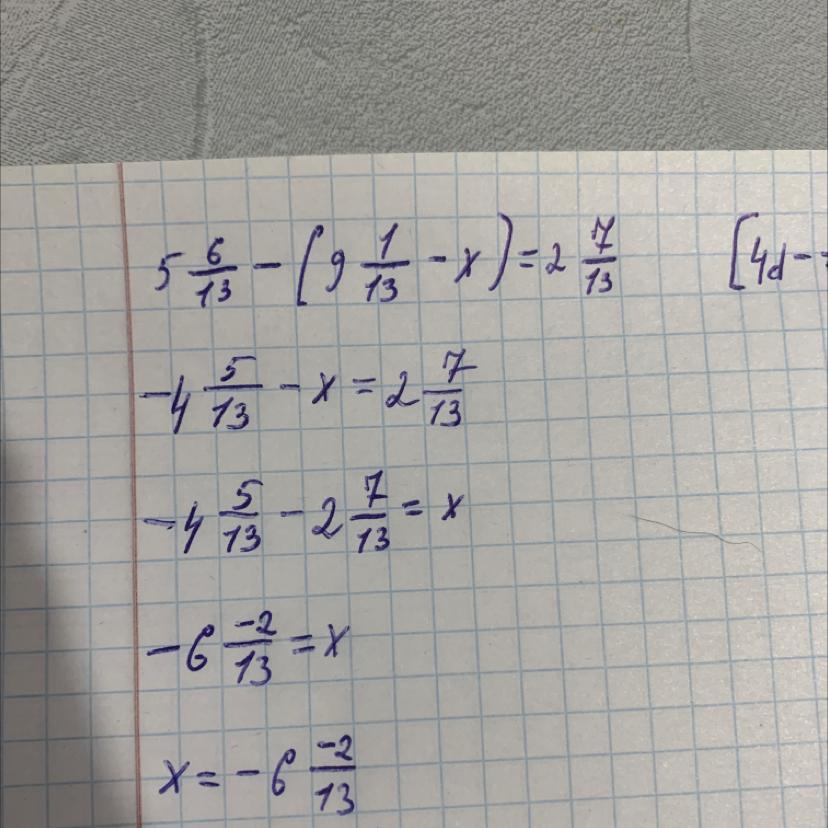 5 6/13 - (9 1/13 - x) = 2 7/13
(4d -
-4 5/13 - x = 2 7/13
-4 5/13 - 2 7/13 = x
-6 -2/13 = x
x = -6 -2/13